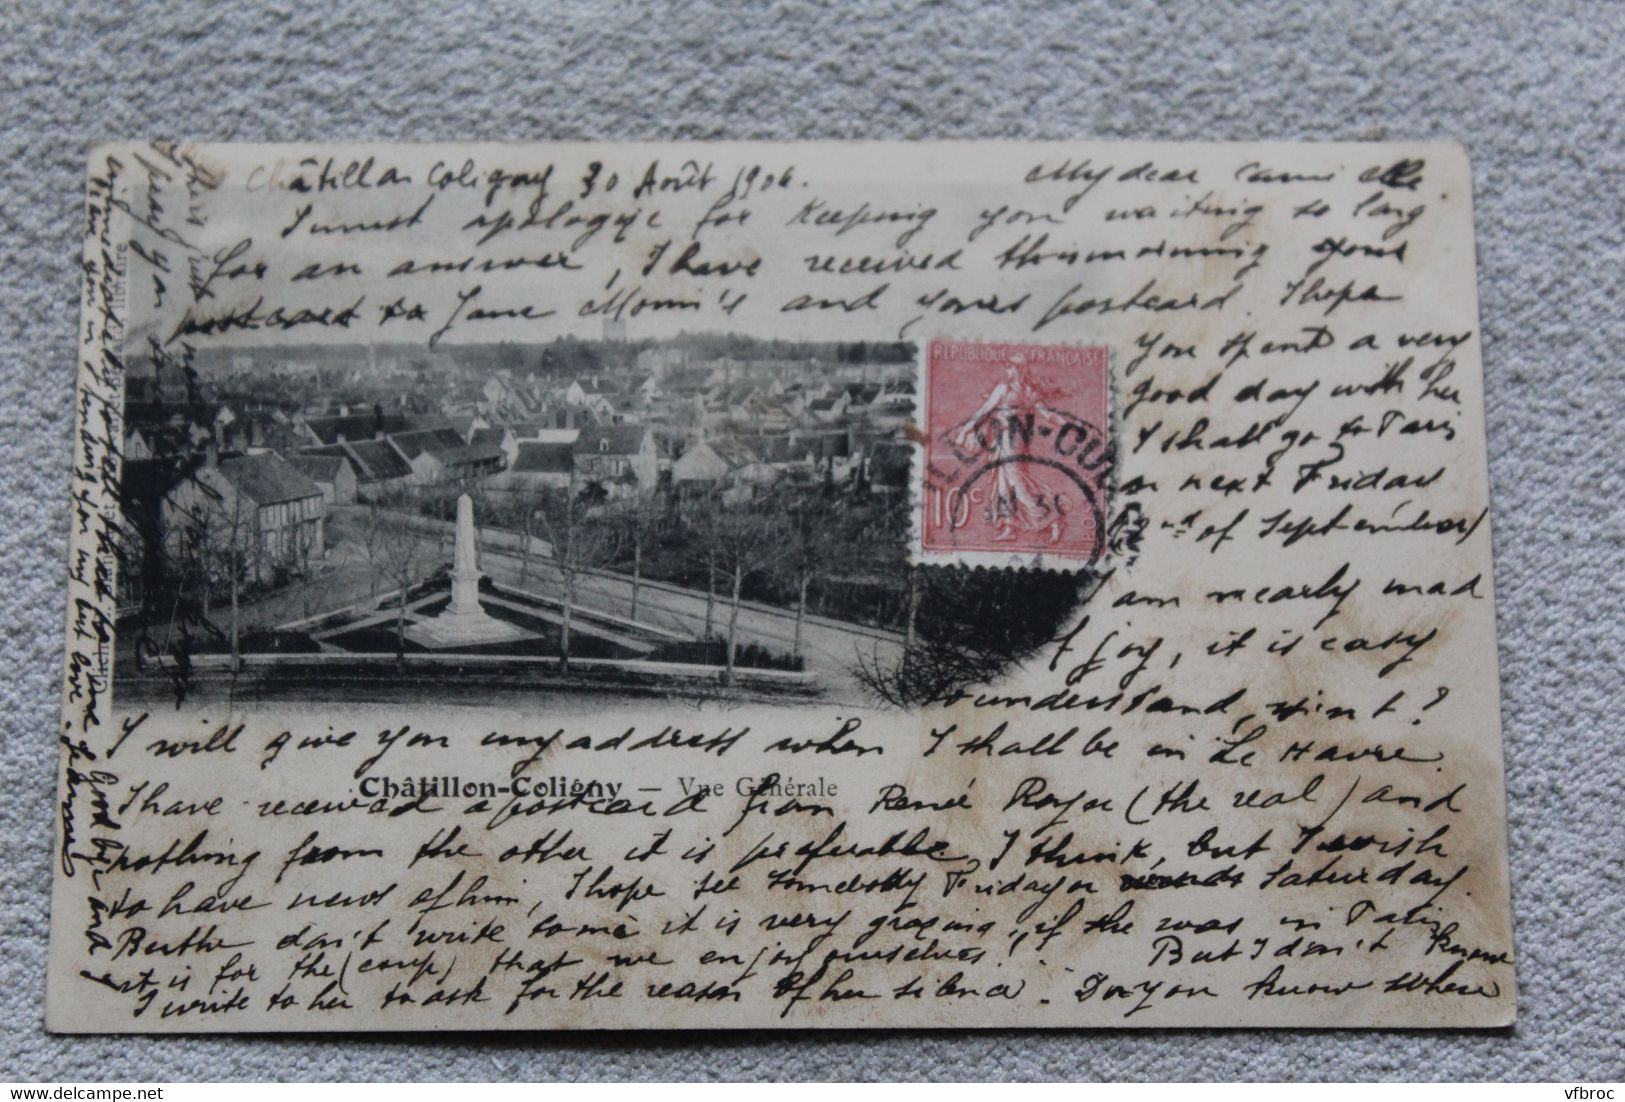 Châtillon Coligny 30 Août 1906. My dear Camille.
I must apologize for keeping you waiting so long
for an answer, I have received this morning your
postcard to Jane Momi's and yours postcard. I hope
you spent a very
good day with her
I shall go to Paris
on next Friday
2nd of September
I am nearly mad
of joy, it is easy
to understand, isin t?
I will give you my address when I shall be in Le Havre.
Châtillon-Coligny — Vue Générale
I have received a postcard from René Royer (the real) and
nothing from the other it is preferable, I think, but I wish
to have news of him, I hope see somebody Friday or Saturday.
Berthe don't write to me it is very
if she was in Paris
it is for the (coup) that we enjoy ourselves! But I don't know
I write to her to ask for the reason of her silence. Do you know where
she is just now
pray you to
immediately to tell her to
Good bye and
I leave you in sending you my but love. Jeanne
REPUBLIQUE FRANÇAISE
10c
POSTES
ILLON-COLI
31
vfbroc